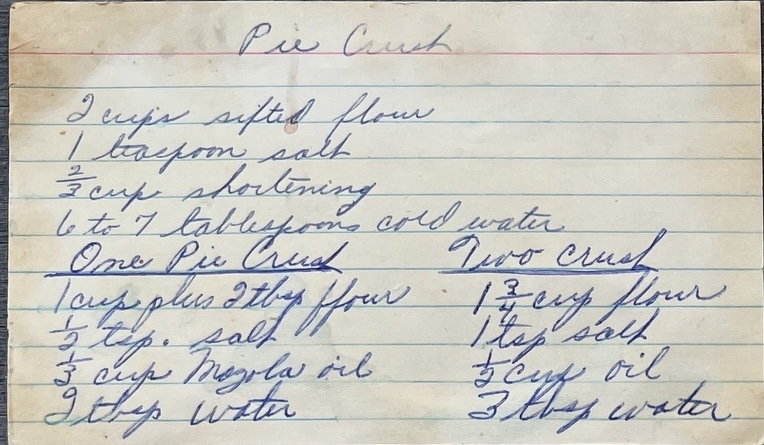 Pie Crust
2 cups sifted flour
1 teaspoon salt
2/3 cup shortening
6 to 7 tablespoons cold water
One Pie Crust
1 cup plus 2 tbsp flour
1/2 tsp. salt
1/3 cup Mazola oil
2 tbsp water
Two crust
1 3/4 cup flour
1 tsp salt
1/2 cup oil
3 tbsp water